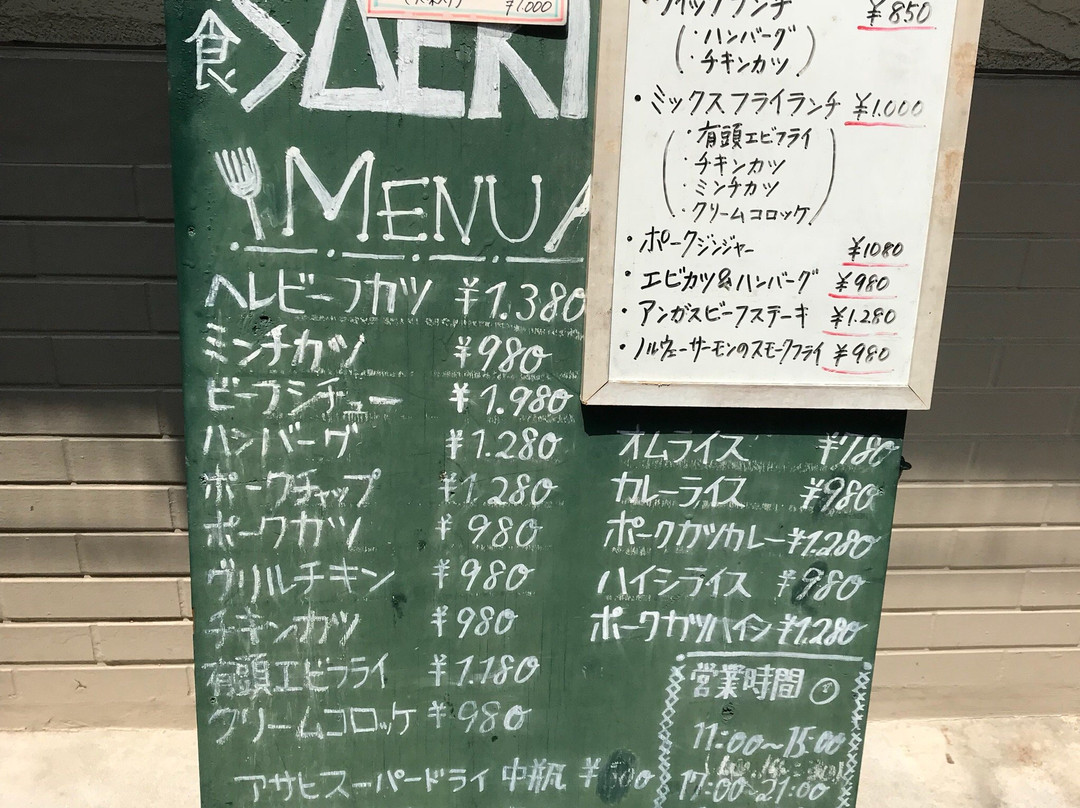 ¥1.000
食
MENU
ヘレビーフカツ ¥1.380
ミンチカツ ¥980
ビーフシチュー ¥1.980
ハンバーグ ¥1.280
ポークチャップ ¥1.280
ポークカツ ¥980
グリルチキン ¥980
チキンカツ ¥980
有頭エビフライ ¥1.180
クリームコロッケ ¥980
アサヒスーパードライ 中瓶
¥850
(・ハンバーグ
・チキンカツ)
・ミックスフライランチ ¥1.000
(・有頭エビフライ
・チキンカツ
・ミンチカツ
・クリームコロッケ)
・ポークジンジャー ¥1080
・エビカツ&ハンバーグ ¥980
・アンガスビーフステーキ ¥1.280
・ノルウェーサーモンのスモークフライ ¥980
オムライス ¥780
カレーライス ¥980
ポークカツカレー ¥1.280
ハイシライス ¥980
ポークカツハイシ ¥1.280
営業時間
11:00~15:00
17:00~21:00